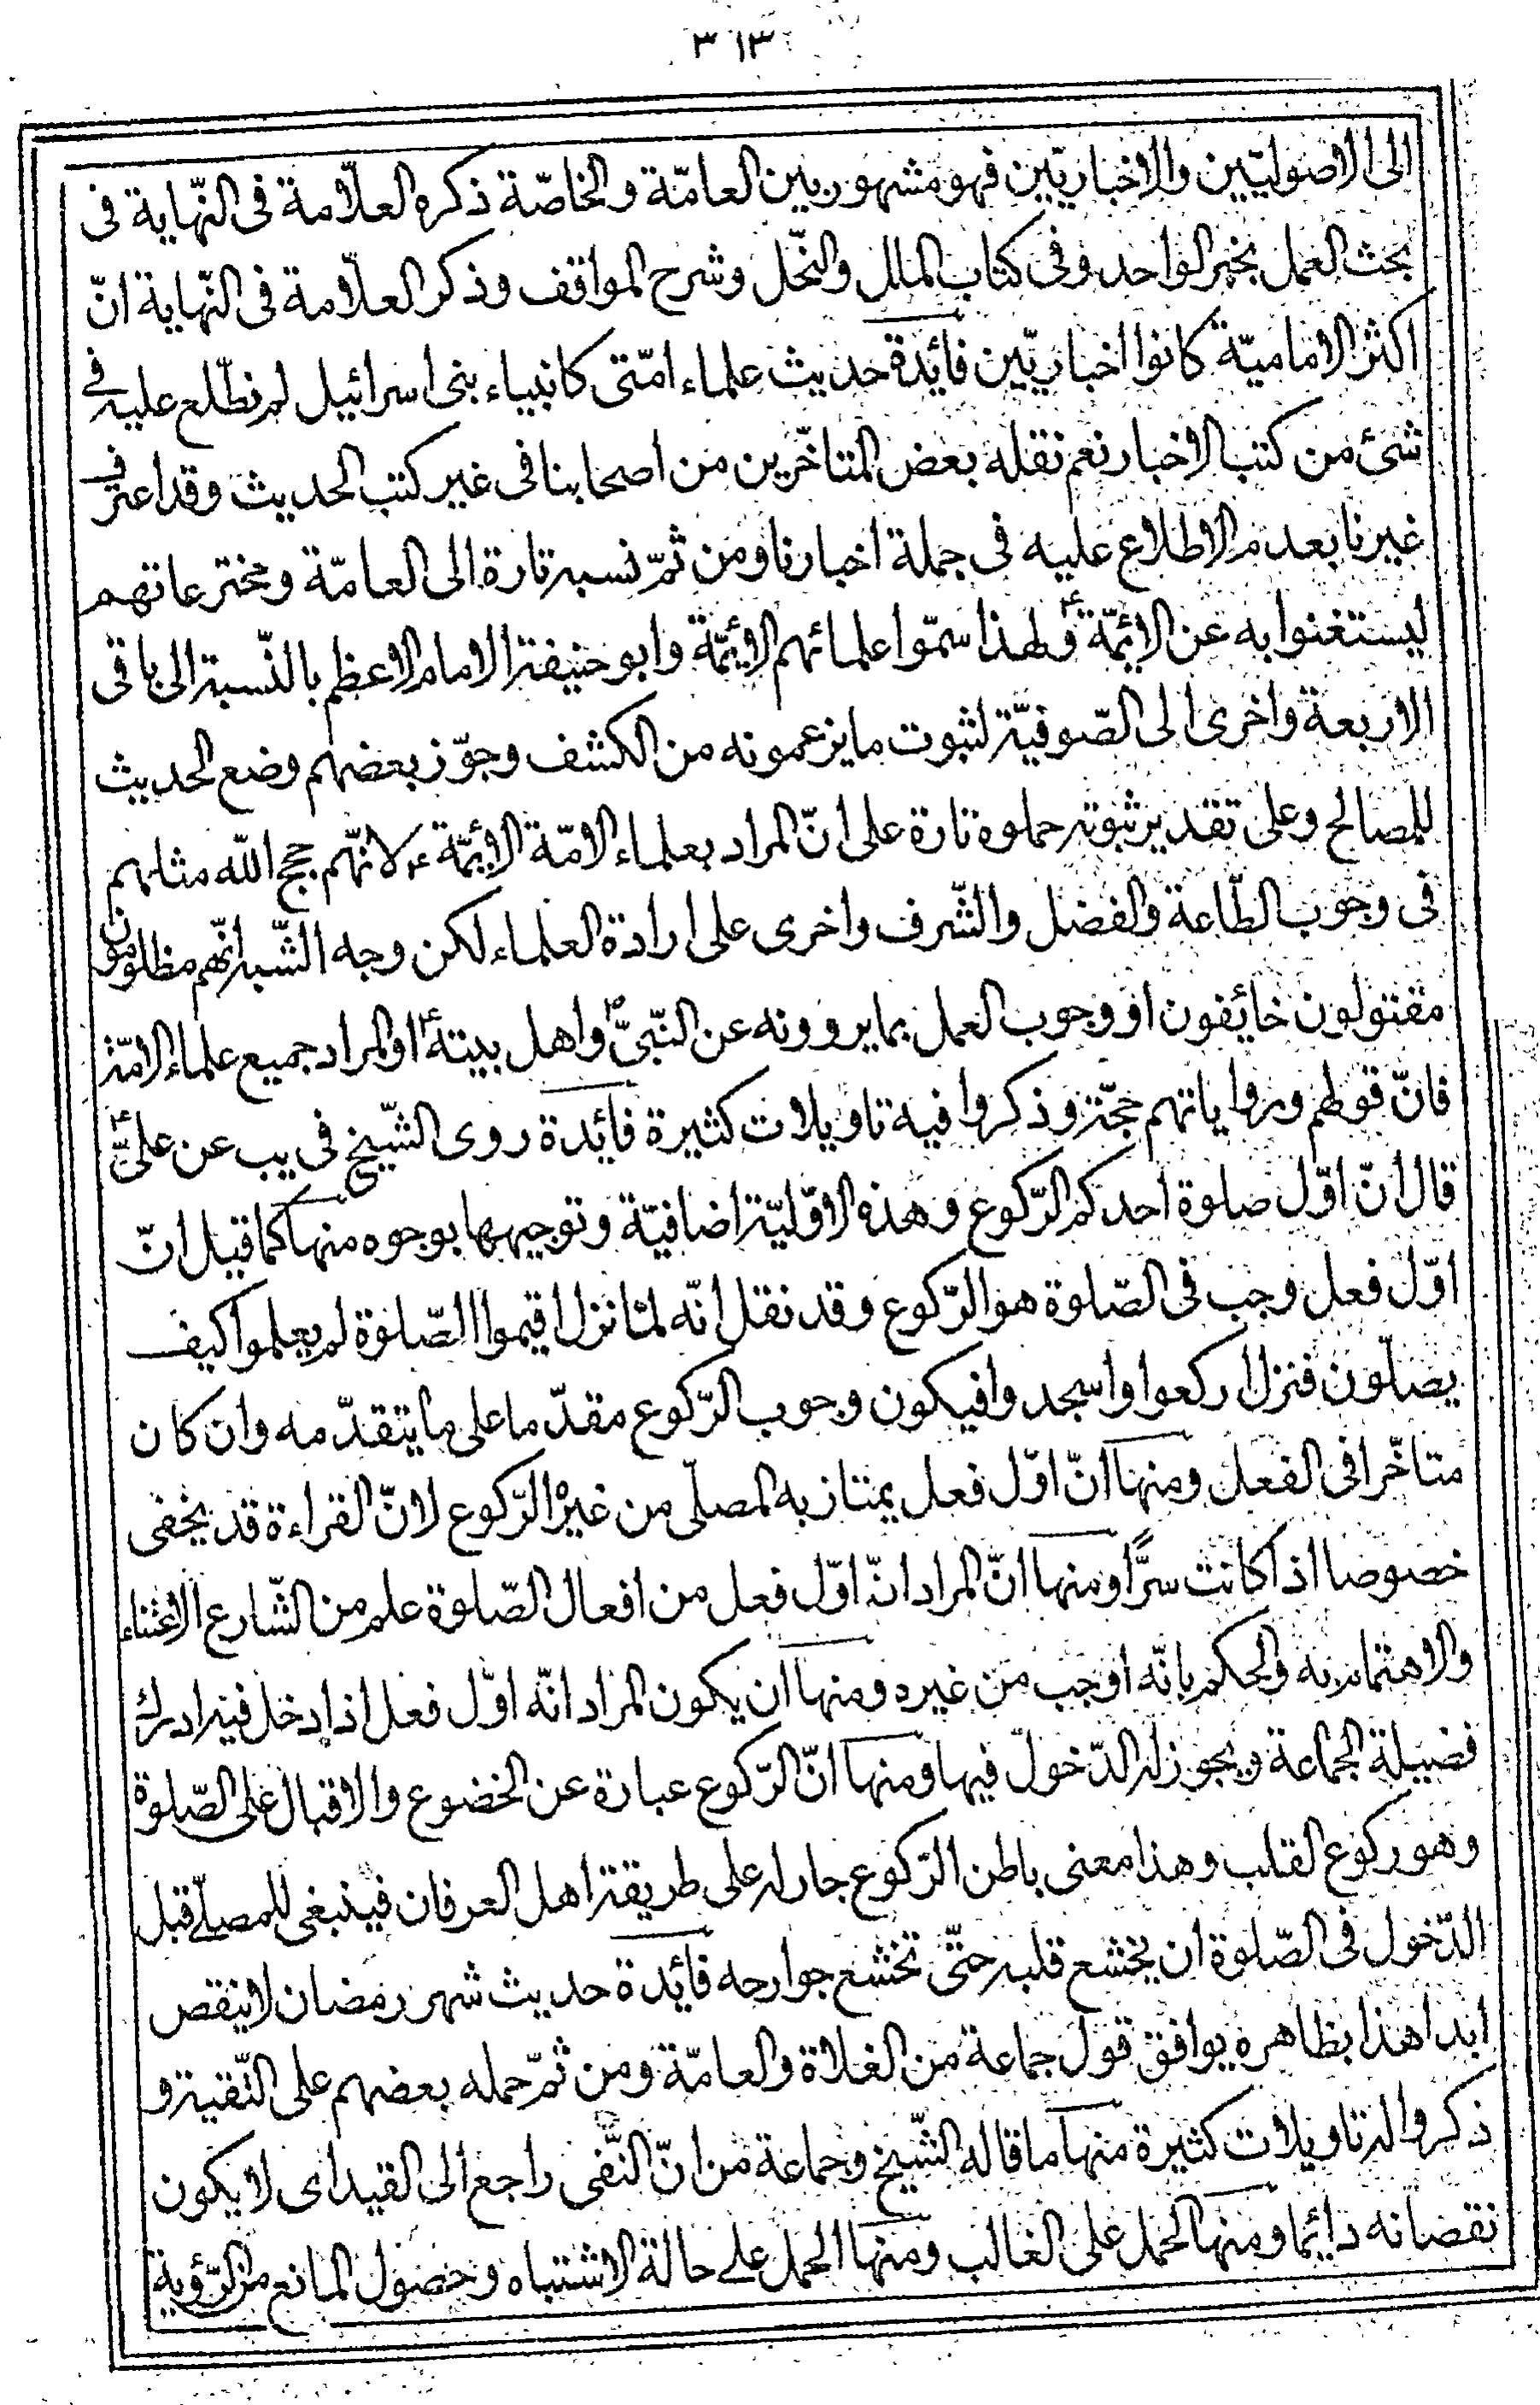 ٣١٣
الى الاصوليّين والاخباريّين فهو مشهور بين العامّة والخاصّة ذكره العلّامة فى النّهاية فى
بحث العمل بخبر الواحد وفى كتاب الملل والنّحل وشرح المواقف وذكر العلّامة فى النّهاية انّ
اكثر الاماميّة كانوا اخباريّين فائدة حديث علماء امّتى كانبياء بنى اسرائيل لم نطّلع عليه فى
شئ من كتب الاخبار نعم نقله بعض المتاخّرين من اصحابنا فى غير كتب الحديث وقد اعترف
غيرنا بعدم الاطلاع عليه فى جملة اخبارنا ومن ثمّ نسبه تارة الى العامّة ومخترعاتهم
ليستغنوا به عن الائمّة ع ولهذا سمّوا علمائهم الائمّة وابو حنيفة الامام الاعظم بالنّسبة الى باقى
الاربعة واخرى الى الصّوفيّة لثبوت ما يزعمونه من الكشف وجوّز بعضهم وضع الحديث
للمصالح وعلى تقدير ثبوته حملوه تارة على انّ المراد بعلماء الامّة الائمّة ع لانّهم حجج الله مثلهم
فى وجوب الطّاعة والفضل والشّرف واخرى على ارادة العلماء لكن وجه الشّبه انّهم مظلومون
مقتولون خائفون او وجوب العمل بما يروونه عن النّبىّ ص واهل بيته ع او المراد جميع علماء الامّة
فانّ قولهم ورواياتهم حجّة وذكروا فيه تاويلات كثيرة فائدة روى الشّيخ فى يب عن علىّ ع
قال انّ اوّل صلوة احدكم الرّكوع وهذه الاوّليّة اضافيّة وتوجيهها بوجوه منها كما قيل انّ
اوّل فعل وجب فى الصّلوة هو الرّكوع وقد نقل انّه لمّا نزل اقيموا الصّلوة لم يعلموا كيف
يصلّون فنزل اركعوا واسجدوا فيكون وجوب الرّكوع مقدّما على ما يتقدّمه وان كان
متاخّرا فى الفعل ومنها انّ اوّل فعل يمتاز به المصلّى من غيره الرّكوع لانّ القراءة قد يخفى
خصوصا اذا كانت سرًّا ومنها انّ المراد انّ اوّل فعل من افعال الصّلوة علم من الشّارع الاعتناء
والاهتمام به والحكم بانّه اوجب من غيره ومنها ان يكون المراد انّه اوّل فعل اذا دخل فيه ادرك
فضيلة الجماعة ويجوز له الدّخول فيها ومنها انّ الرّكوع عبارة عن الخضوع والاقبال على الصّلوة
وهو ركوع القلب وهذا معنى باطن الرّكوع جار له على طريقة اهل العرفان فينبغى للمصلّى قبل
الدّخول فى الصّلوة ان يخشع قلبه حتّى تخشع جوارحه فائدة حديث شهر رمضان لا ينقص
ابدا هذا بظاهره يوافق قول جماعة من الغلاة والعامّة ومن ثمّ حمله بعضهم على التّقية و
ذكروا له تاويلات كثيرة منها ما قاله الشّيخ وجماعة من انّ النّفى راجع الى القيد اى لا يكون
نقصانه دائما ومنها الحمل على الغالب ومنها الحمل على حالة الاشتباه وحصول المانع من الرّؤية